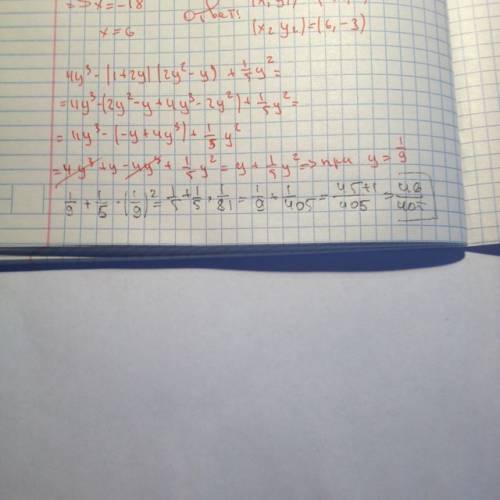 => x = -18
Ответ:
x = 6 (x₂ y₂) = (6, -3)
4y³ - (1+2y)(2y² - y) + 1/5 y² =
= 4y³ - (2y² - y + 4y³ - 2y²) + 1/5 y² =
= 4y³ - (-y + 4y³) + 1/5 y²
= 4y³ + y - 4y³ + 1/5 y² = y + 1/5 y² => при y = 1/9
1/9 + 1/5 · (1/9)² = 1/9 + 1/5 · 1/81 = 1/9 + 1/405 = 45+1/405 = 46/405